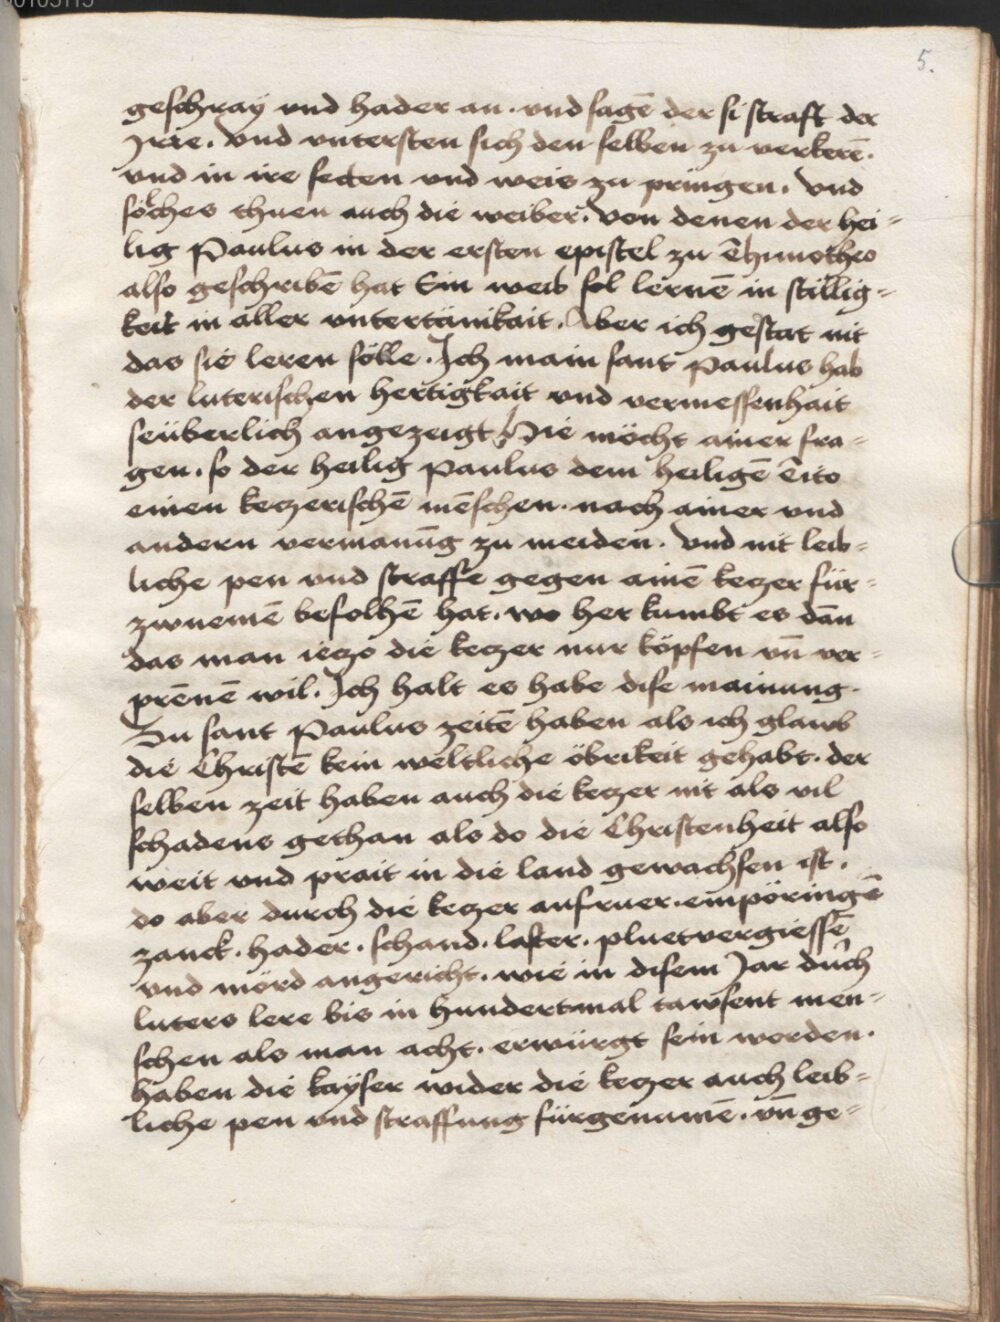 00105115
5.
geschray vnd hader an. vnd sagē der si straft der
Jrre. Vnd vntersten sich den selben zu verkerē.
vnd in ire secten vnd weis zu pringen. Vnd
sölches thuen auch die weiber. Von denen der hei-
lig Paulus in der ersten epistel zu Thimotheo
also geschribē hat Ein weib sol lernē in stillig-
keit in aller vntertänikait. Aber ich gestat nit
das sie leren sölle. Ich main sant Paulus hab
der luterischen hertigkait vnd vermessenhait
seüberlich angezeigt. Hie möcht ainer fra-
gen. so der heilig Paulus dem heiligē Tito
einen keczerischē mēschen. nach ainer vnd
andern vermanūg zu meiden. Vnd nit leib-
liche pen vnd straffe gegen ainē keczer für-
zwnemē befolhē hat. wo her kumbt es dān
das man ieczo die keczer nur köpfen vn̄ ver-
prēnē wil. Ich halt es habe dise mainung.
Zu sant Paulus zeitē haben als ich glawb
die Christē kein weltliche öbrikeit gehabt. der
selben zeit haben auch die keczer nit als vil
schadens gethan als do die Christenheit also
weit vnd prait in die land gewachsen ist.
do aber durch die keczer aufruer. empöringē
zanck. hader. schand. laster. pluetvergiessē
vnd mörd angericht. wie in disem Jar duch
luters lere bis in hundertmal tawsent men-
schen als man acht. erwürgt sein worden.
haben die kayser wider die keczer auch leib-
liche pen vnd straffung fürgenumē. vn̄ ge-